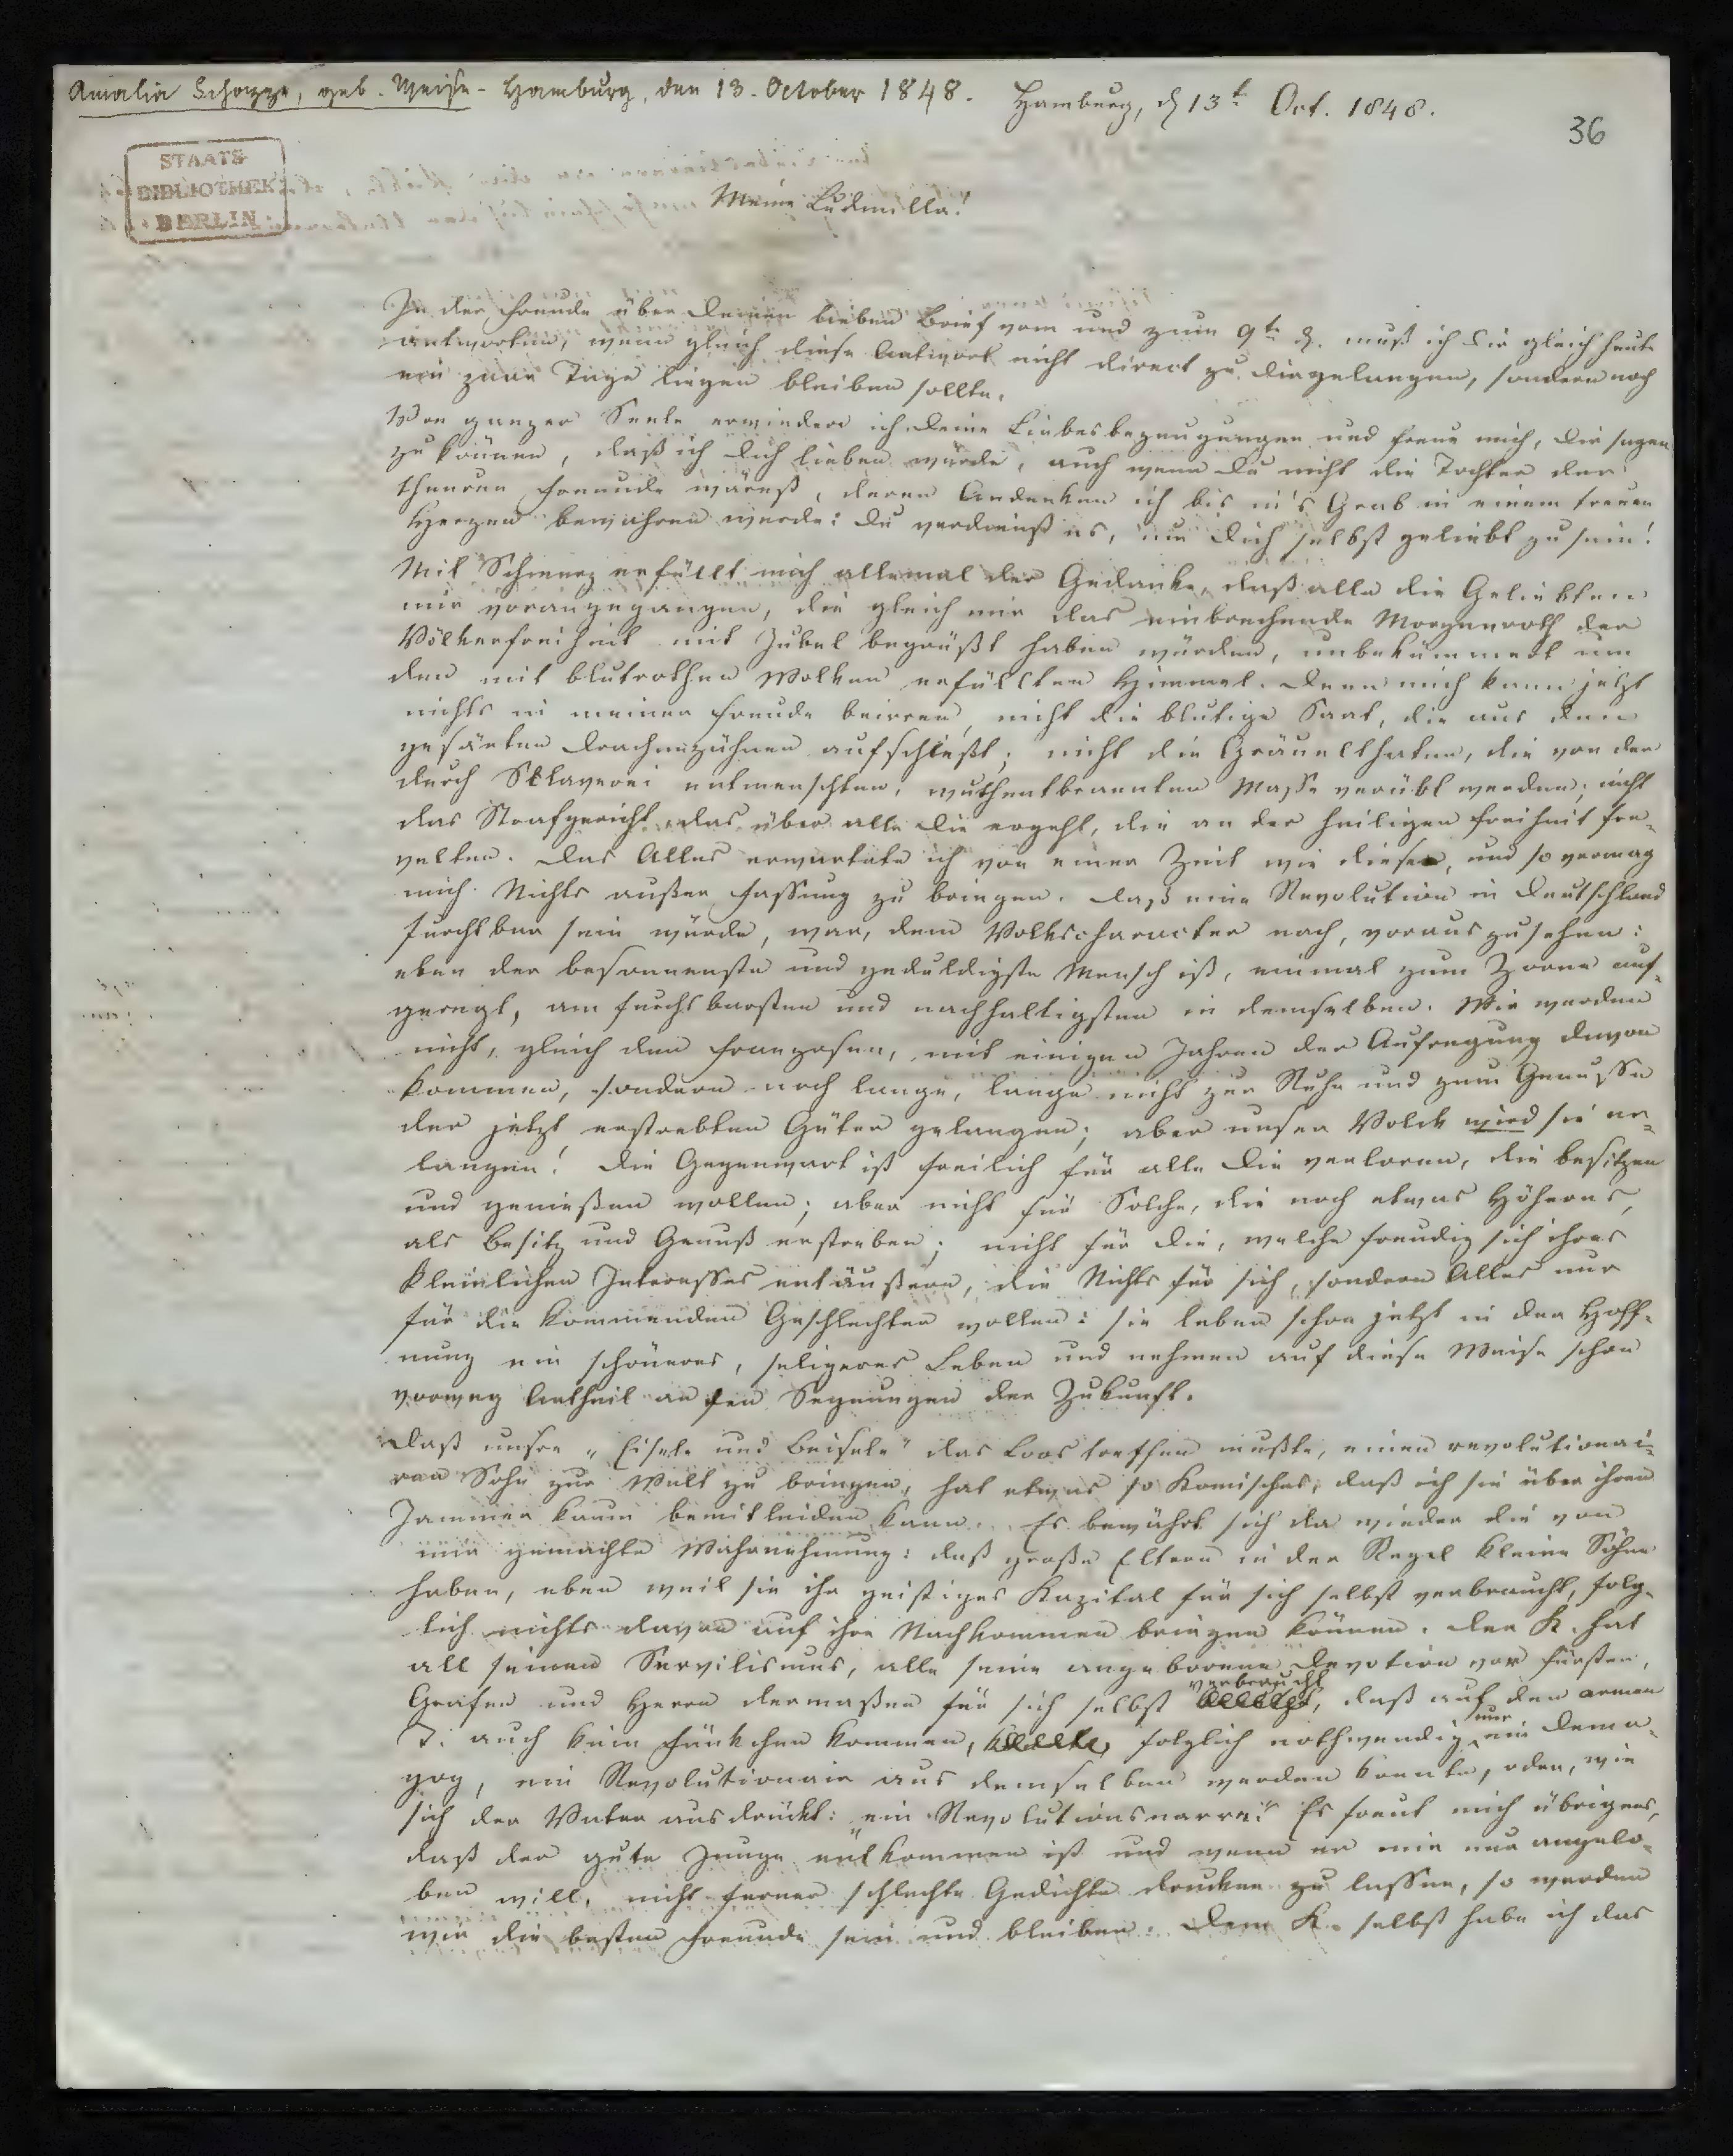 Amalia Schoppe, geb. Weise - Hamburg, den 13. October 1848.
Hamburg, d 13t Oct. 1848.
36
STAATS
BIBLIOTHEK
BERLIN
Meine Ludmilla!
In der Freude über Deinen lieben Brief vom und zum 9tn d. muß ich Dir gleich heute
antworten, wenn gleich diese Antwort nicht direct zu Dir gelangen, sondern noch
ein paar Tage liegen bleiben sollte.
Von ganzer Seele erwiedere ich Deine Liebesbezeugungen und freue mich, Dir sagen
zu können, daß ich Dich lieben würde, auch wenn Du nicht die Tochter der
theuren Freunde wärest, deren Andenken ich bis in's Grab in einem treuen
Herzen bewahren werde: Du verdienst es, um Dich selbst geliebt zu sein!
Mit Schmerz erfüllt mich allemal der Gedanke, daß alle die Geliebten
mir vorangegangen, die gleich mir das einbrechende Morgenroth der
Völkerfreiheit mit Jubel begrüßt haben würden, unbekümmert um
den mit blutrothen Wolken erfüllten Himmel. Denn mich kann jetzt
nichts in meiner Freude beirren, nicht die blutige Saat, die aus den
gesäeten Drachenzähnen aufschießt; nicht die Gräuelthaten, die von der
durch Sklaverei entmenschten, wuthentbrannten Masse verübt werden; nicht
das Strafgericht, das über alle Die ergeht, die an der heiligen Freiheit fre-
velten. Das Alles erwartete ich von einer Zeit wie dieser, und so vermag
mich Nichts außer Fassung zu bringen. Daß eine Revolution in Deutschland
furchtbar sein würde, war, dem Volkscharacter nach, vorauszusehen:
eben der besonnenste und geduldigste Mensch ist, einmal zum Zorne auf-
geregt, am furchtbarsten und nachhaltigsten in demselben. Wir werden
nicht, gleich den Franzosen, mit einigen Jahren der Aufregung davon
kommen, sondern noch lange, lange nicht zur Ruhe und zum Genusse
der jetzt erstrebten Güter gelangen; aber unser Volck wird sie er-
langen! Die Gegenwart ist freilich für alle Die verloren, die besitzen
und genießen wollen; aber nicht für Solche, die noch etwas Höheres,
als Besitz und Genuß erstreben; nicht für Die, welche freudig sich ihres
kleinlichen Interesses entäußern, die Nichts für sich, sondern Alles nur
für die kommenden Geschlechter wollen: sie leben schon jetzt in der Hoff-
nung ein schöneres, seligeres Leben und nehmen auf diese Weise schon
vorweg Antheil an den Segnungen der Zukunft.
Daß unsre „Eisele und Beisele" das Loos treffen mußte, einen revolutionai-
ren Sohn zur Welt zu bringen, hat etwas so Komisches, daß ich sie über ihren
Jammer kaum bemitleiden kann. Es bewährt sich da wieder die von
mir gemachte Wahrnehmung: daß große Eltern in der Regel kleine Söhne
haben, eben weil sie ihr geistiges Kapital für sich selbst verbraucht, folg-
lich nichts davon auf ihre Nachkommen bringen können. Der K. hat
all seinen Servilismus, alle seine angeborene Devotion vor Fürsten,
Grafen und Herrn dermaßen für sich selbst verbraucht, daß auf den armen
T. auch kein Fünkchen kommen, folglich nothwendig nur ein Dema-
gog, ein Revolutionair aus demselben werden konnte, oder, wie
sich der Vater ausdrückt: „ein Revolutionsnarre." Es freut mich übrigens,
daß der gute Junge entkommen ist und wenn er mir nur angelo-
ben will, nicht ferner schlechte Gedichte drucken zu lassen, so werden
wir die besten Freunde sein und bleiben. Dem K. selbst habe ich das